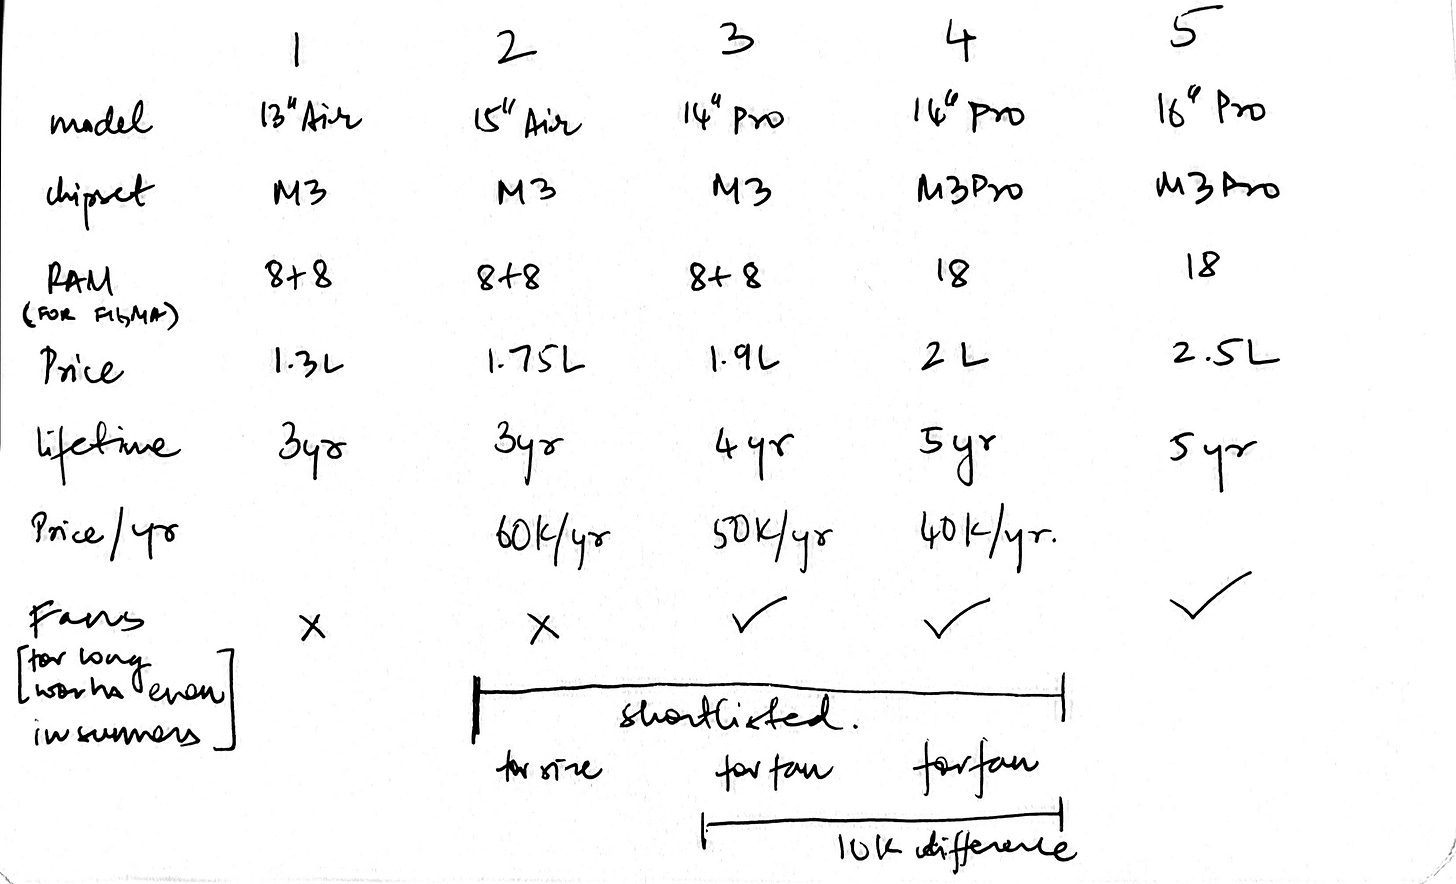 1 2 3 4 5
model 13" Air 15" Air 14" Pro 14" Pro 16" Pro
chipset M3 M3 M3 M3 Pro M3 Pro
RAM 8+8 8+8 8+8 18 18
(FOR FIGMA)
Price 1.3L 1.75L 1.9L 2L 2.5L
lifetime 3yr 3yr 4yr 5yr 5yr
Price/yr 60K/yr 50K/yr 40K/yr.
Fans x x ✓ ✓ ✓
[for long
works even
in summers]
shortlisted.
for size for fan for fan
10K difference